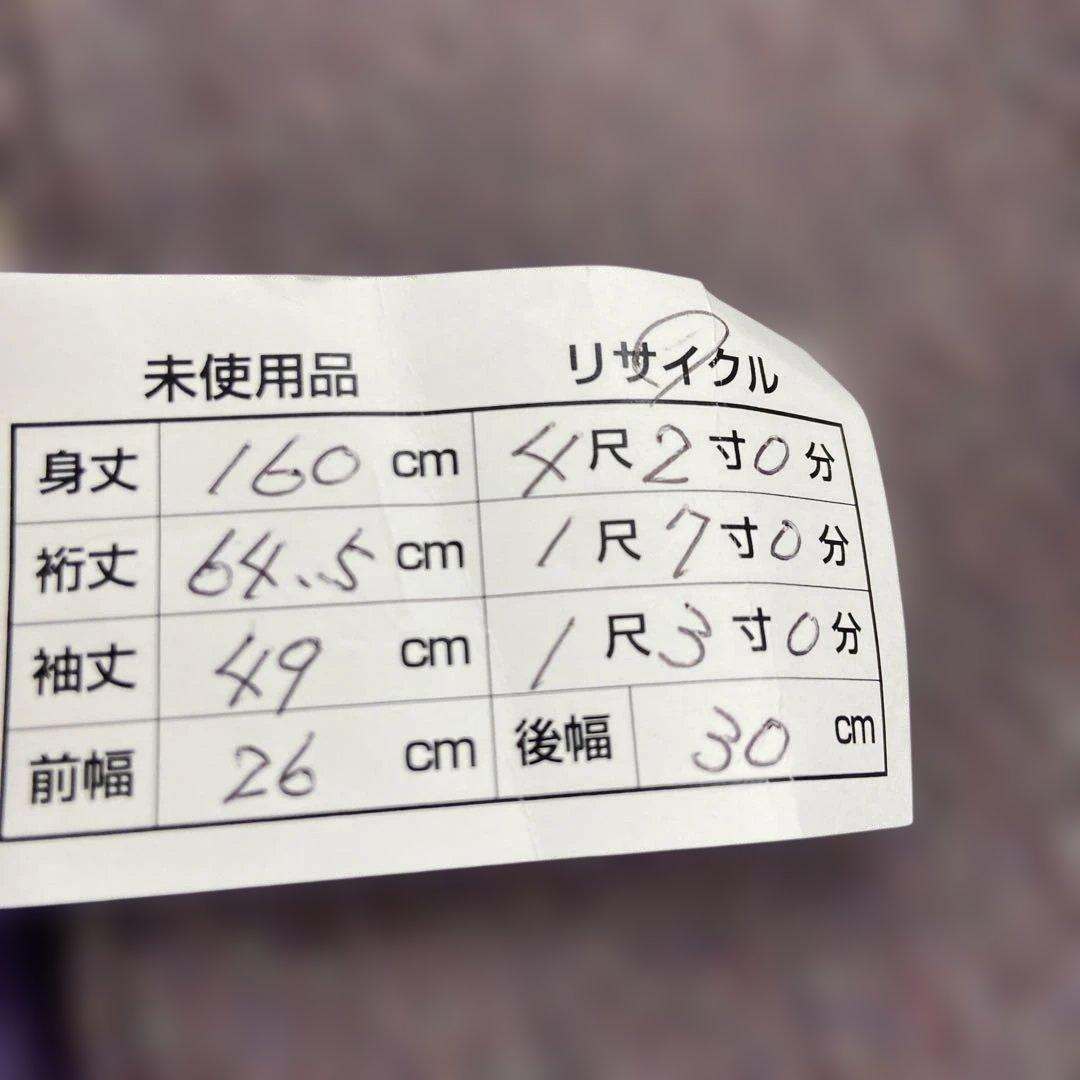 未使用品 リサイクル
身丈 160 cm 4尺2寸0分
裄丈 64.5 cm 1尺7寸0分
袖丈 49 cm 1尺3寸0分
前幅 26 cm 後幅 30 cm